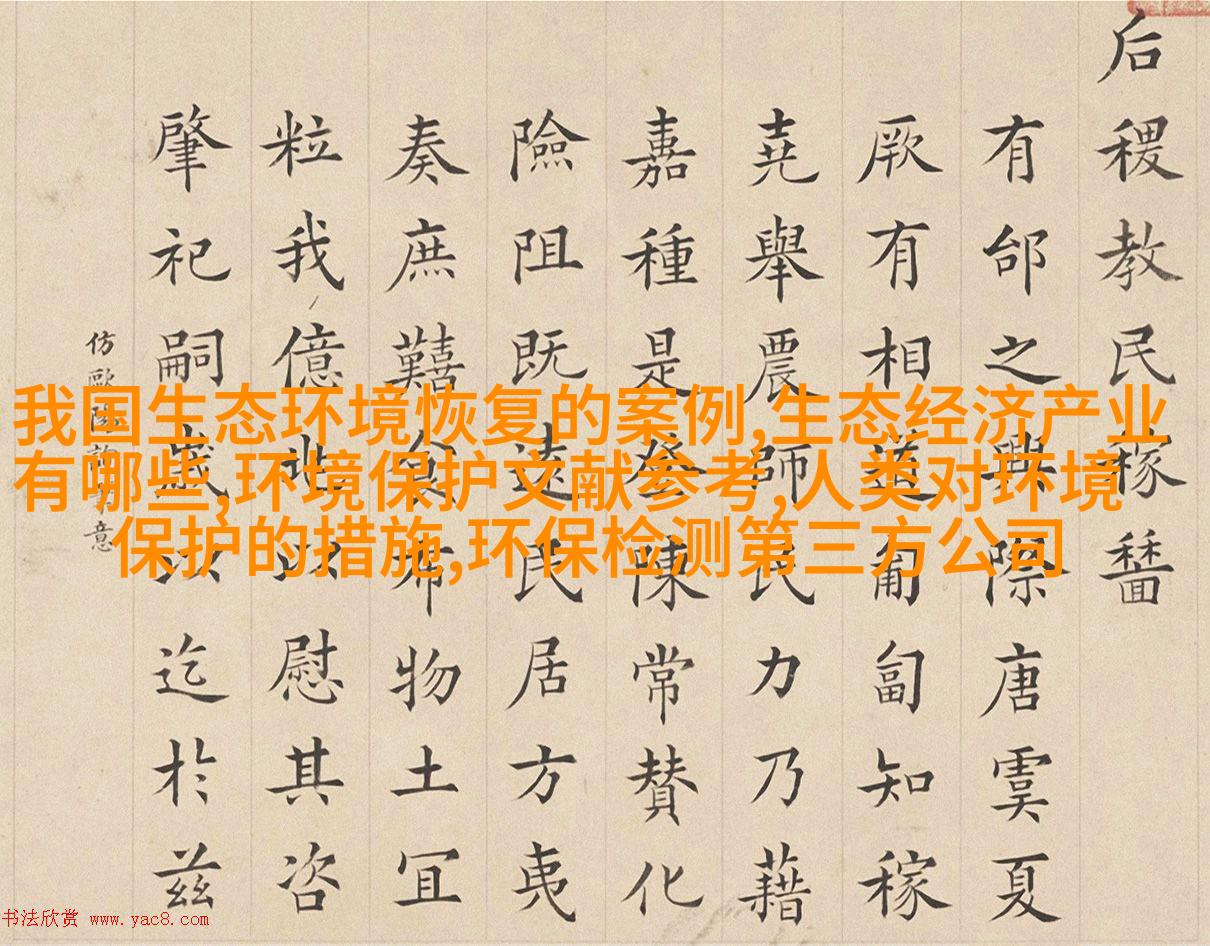 后稷教民稼穡
有邰之興際唐虞夏
厥有相道匍匐知稼
堯舉農師民力乃藉
嘉種是陳常贊化
險阻既遠民居方夷
奏庶囏食布物土宜
粒我億兆以慰其咨
肇祀嗣歲以迄於茲
仿歐陽詢意
我国生态环境恢复的案例,生态经济产业
有哪些,环境保护文献参考,人类对环境
保护的措施,环保检测第三方公司
书法欣赏 www.yac8.com